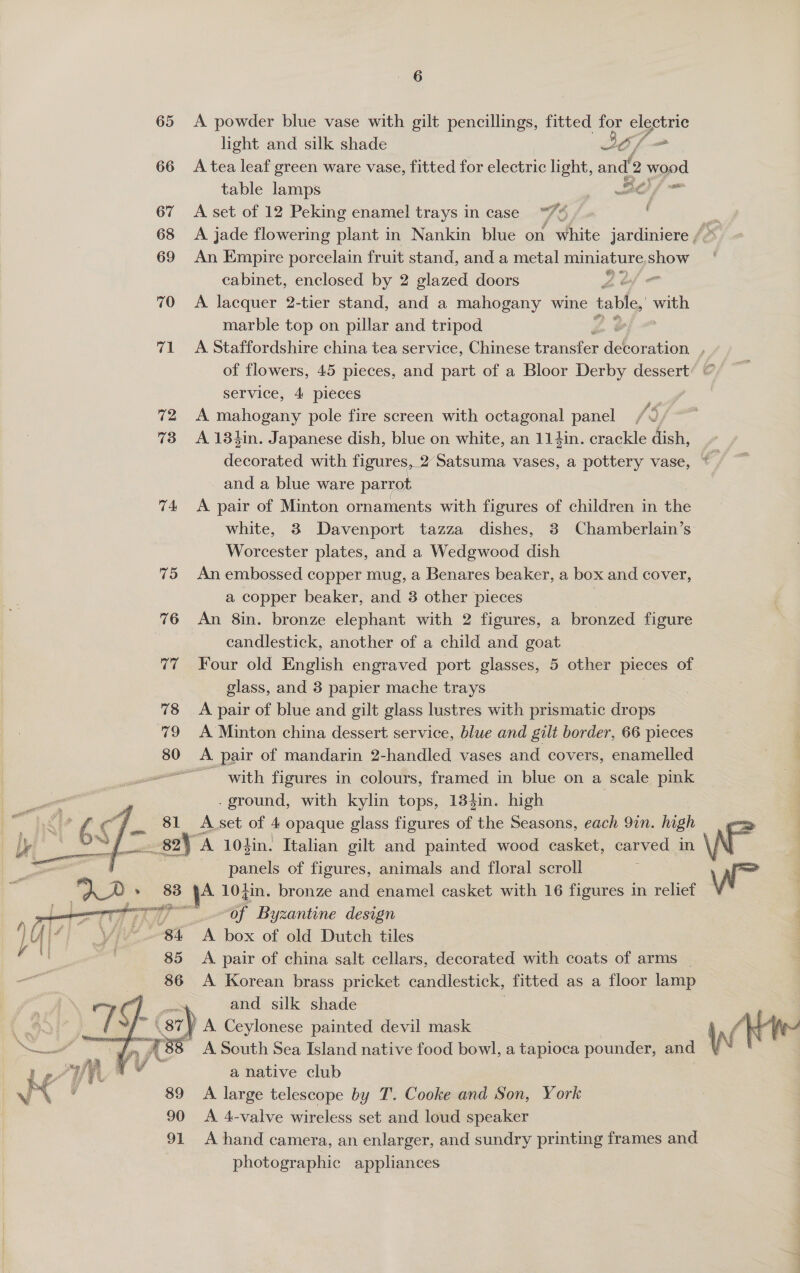 6
65 A powder blue vase with gilt pencillings, fitted for electric
light and silk shade
66 A tea leaf green ware vase, fitted for electric light, and 2 wood
table lamps
67 A set of 12 Peking enamel trays in case
68 A jade flowering plant in Nankin blue on white jardiniere
69 An Empire porcelain fruit stand, and a metal miniature show
cabinet, enclosed by 2 glazed doors
70 A lacquer 2-tier stand, and a mahogany wine table, with
marble top on pillar and tripod
71 A Staffordshire china tea service, Chinese transfer decoration
of flowers, 45 pieces, and part of a Bloor Derby dessert
service, 4 pieces
72 A mahogany pole fire screen with octagonal panel
73 A 13½in. Japanese dish, blue on white, an 11½in. crackle dish,
decorated with figures, 2 Satsuma vases, a pottery vase,
and a blue ware parrot
74 A pair of Minton ornaments with figures of children in the
white, 3 Davenport tazza dishes, 3 Chamberlain's
Worcester plates, and a Wedgwood dish
75 An embossed copper mug, a Benares beaker, a box and cover,
a copper beaker, and 3 other pieces
76 An 8in. bronze elephant with 2 figures, a bronzed figure
candlestick, another of a child and goat
77 Four old English engraved port glasses, 5 other pieces of
glass, and 3 papier mache trays
78 A pair of blue and gilt glass lustres with prismatic drops
79 A Minton china dessert service, blue and gilt border, 66 pieces
80 A pair of mandarin 2-handled vases and covers, enamelled
with figures in colours, framed in blue on a scale pink
ground, with kylin tops, 13½in. high
81 A set of 4 opaque glass figures of the Seasons, each 9in. high
82 A 10½in. Italian gilt and painted wood casket, carved in
panels of figures, animals and floral scroll
83 A 10½in. bronze and enamel casket with 16 figures in relief
of Byzantine design
84 A box of old Dutch tiles
85 A pair of china salt cellars, decorated with coats of arms
86 A Korean brass pricket candlestick, fitted as a floor lamp
and silk shade
87 A Ceylonese painted devil mask
88 A South Sea Island native food bowl, a tapioca pounder, and
a native club
89 A large telescope by T. Cooke and Son, York
90 A 4-valve wireless set and loud speaker
91 A hand camera, an enlarger, and sundry printing frames and
photographic appliances